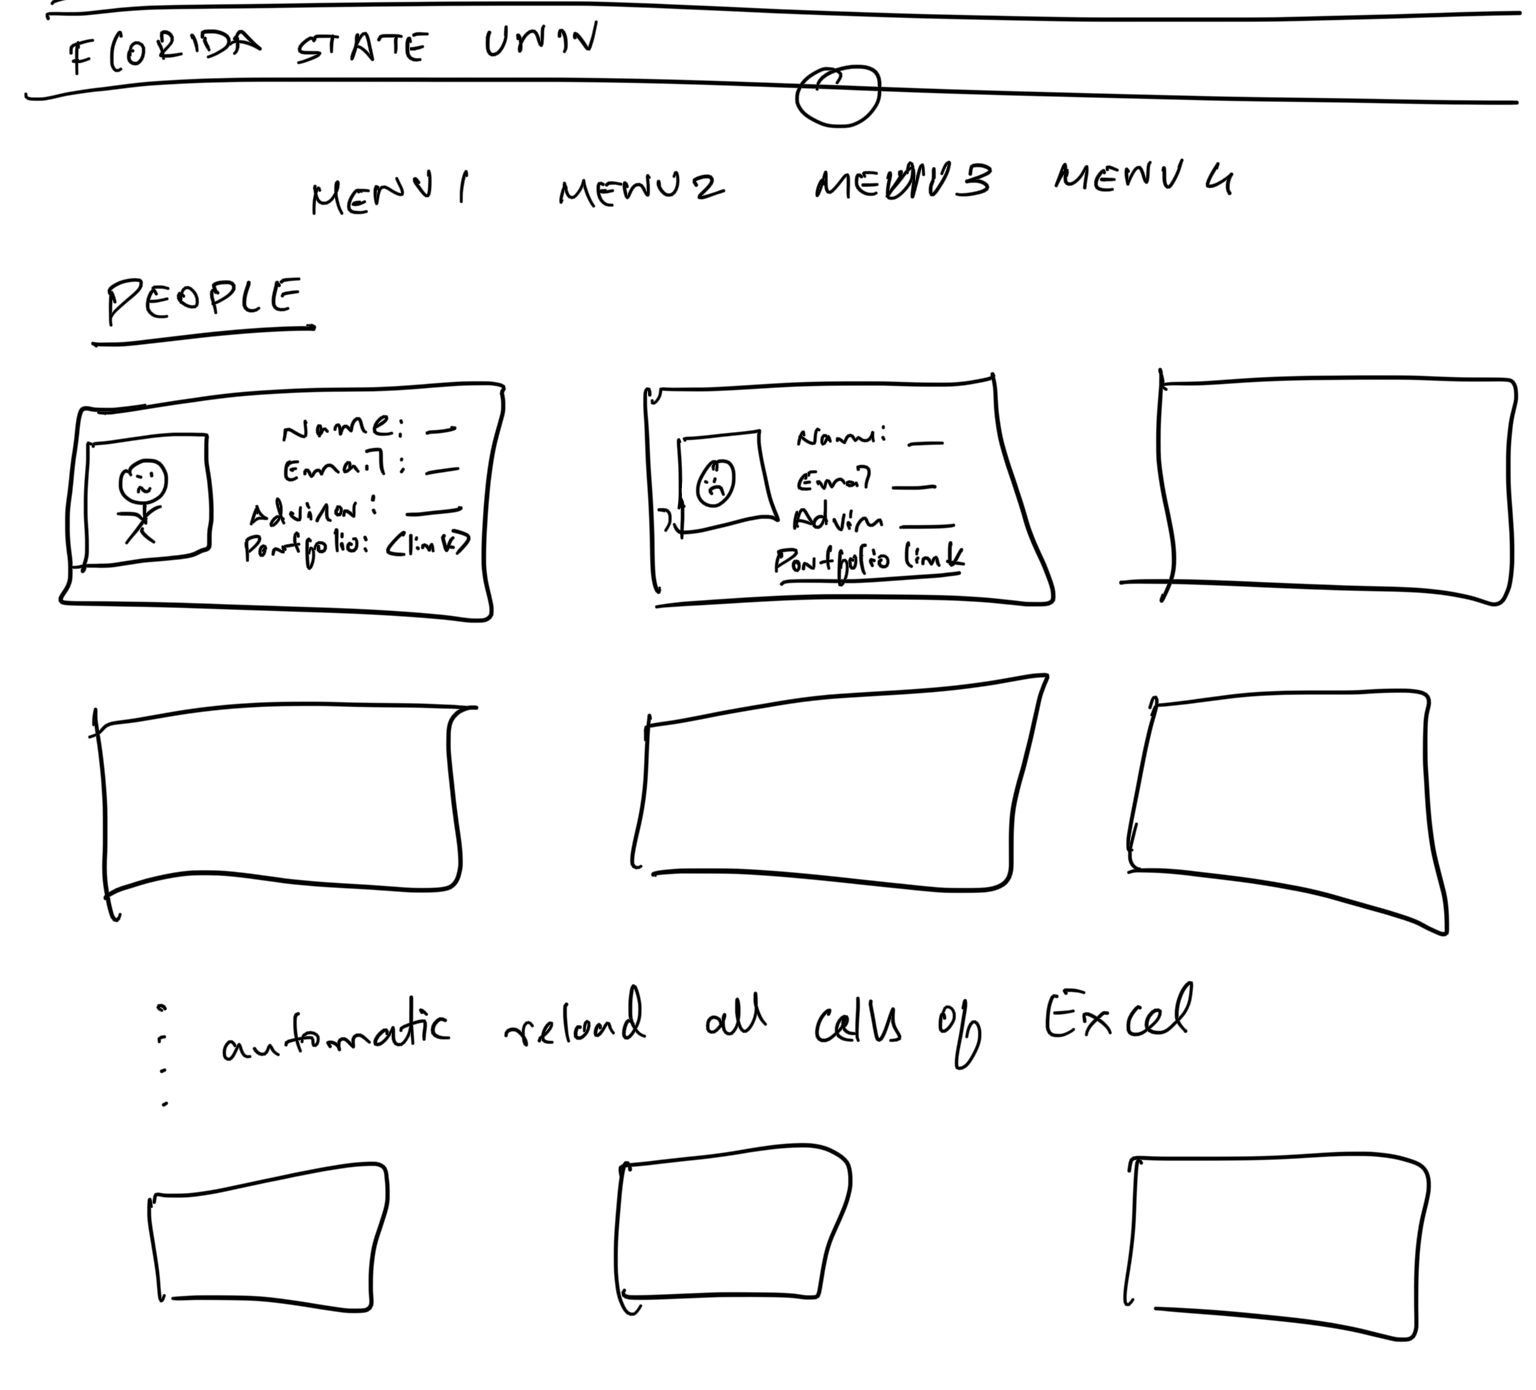 FLORIDA STATE UNIV
MENU 1 MENU 2 MENU 3 MENU 4
PEOPLE
Name: —
Email: —
Advisor: —
Portfolio: <link>
Name: —
Email —
Advisor —
Portfolio link
automatic reload all cells of Excel